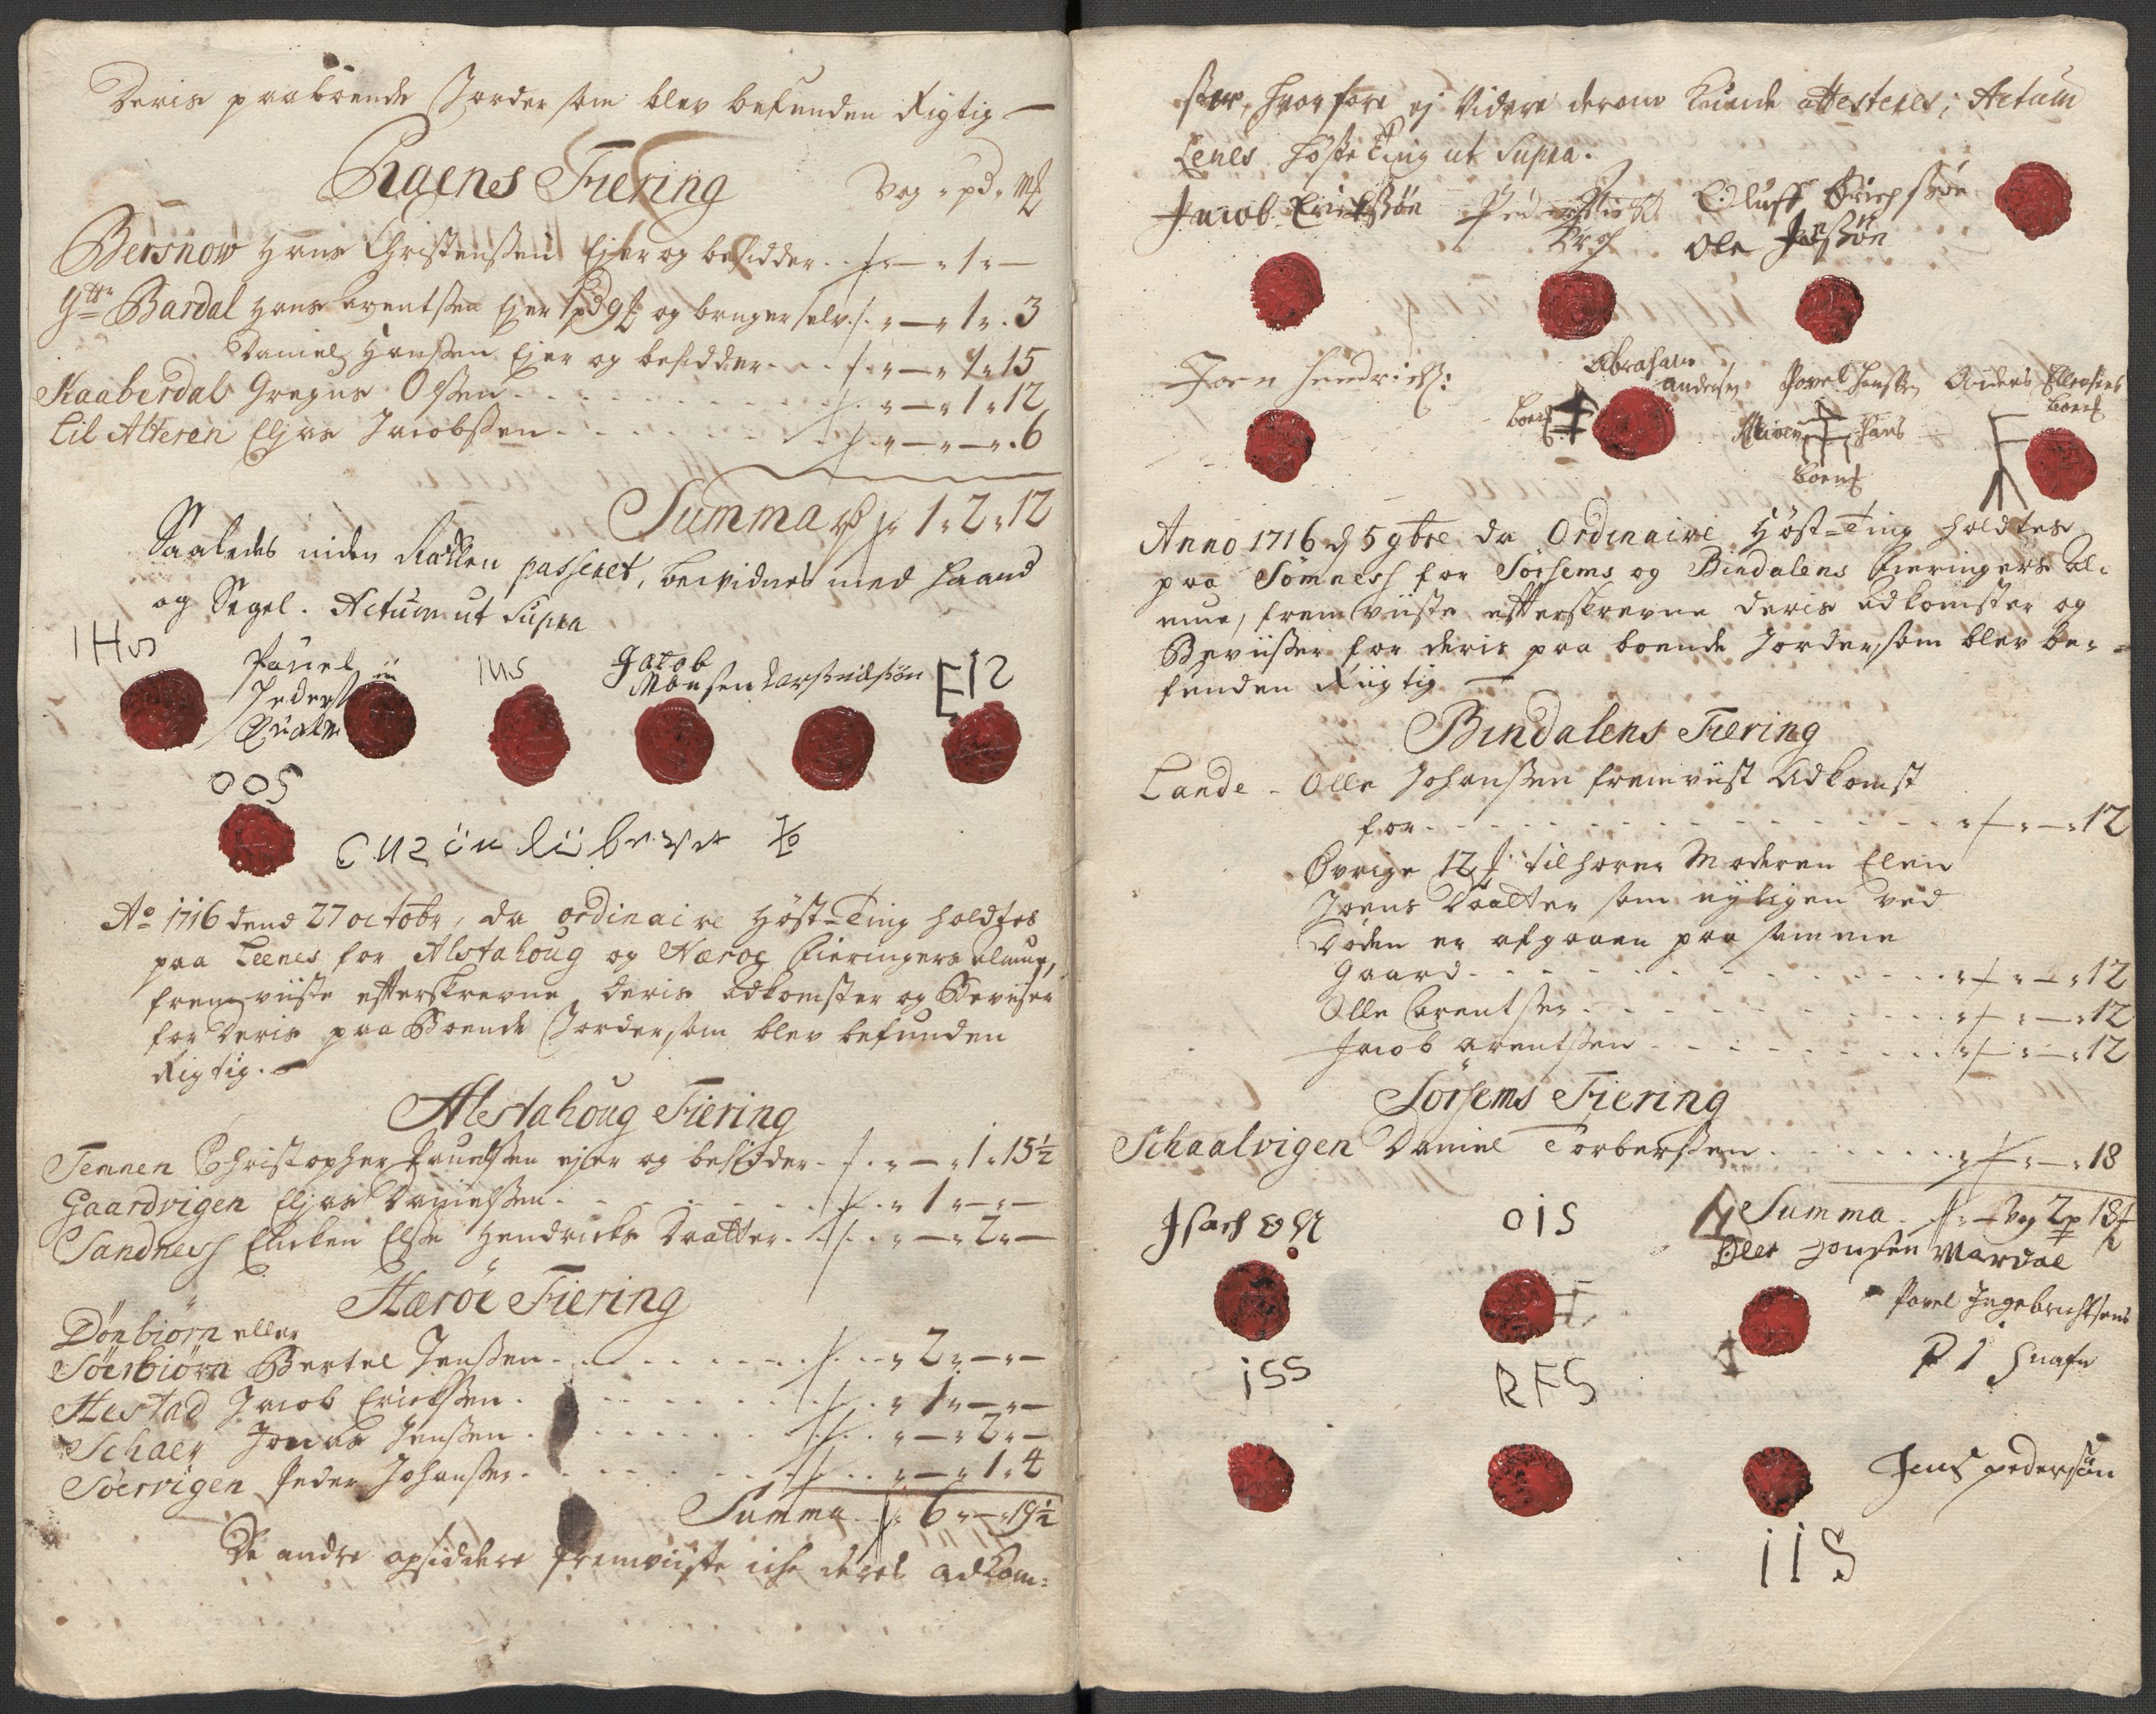 Deris paaboende Jorder som blev befunden Rigtig —
Ranens Fiering
Vog " pd " mk
Bersnow Hans Christensen Ejer og besidder . . — " 1 " —
Bardal Hans Arentsen Ejer 1 pd 9 og bruger selv . " — " 1 " . 3
Daniel Hansen Ejer og besidder . . . " — " 1 " 15
Kaaberdal Gregus Olsen . . . " — " 1 " 12
Lil Alteren Elias Jacobsen . . . " — " — " . 6
Summa 1 " 2 " 12
Saaledes inden Retten passeret, bevidnes med Haand
og Segel. Actum ut Supra
IHS
Pauel
Peders
INS
Jacob
Monsen Larsnilsøn
EIS
OOS
Ao 1716 dend 27 octobr, da ordinaire Höst-Ting holdtes
paa Leenes for Alstahoug og Herøe Fieringers almue,
fremviiste efterskrevne deris adkomster og Beviser
for Deris paa Boende Jorder, som blev befunden
Rigtig. —
Alstahoug Fiering
Temnen Christopher Pauelsen ejer og besidder . . " — " 1 " 15½
Gaardvigen Elias Danielsen . . . " 1 " — " —
Sandnes Encken Else Hendricks Daatter . . " — " 2 " —
Herøe Fiering
Dönbiorn eller
Söerbiörn Bertel Jensen . . . " 2 " — " —
Hestad Jacob Ericksen . . . " 1 " — " —
Schaer Jonas Jensen . . . " — " 2 " —
Söervigen Peder Johansen . . . " — " 1 " 4
Summa 6 " — " 19½
De andre opsiddere fremviiste iche deres adkom=
ster, hvorfore ej Videre derom kunde attesteres; Actum
Leenes Höste Ting ut Supra.
Jacob Erickssön
Oluff Erichssøn
Ole Jenssön
Joen Hendricks:
Abraham
Andersen
Povel Hansen
Anders
boms
Hans
boms
boms
Anno 1716 d 5 9bre da Ordinaire Höst-Ting holdtes
paa Sömnes for Sörhems og Bindalens Fieringers Al-
mue, fremviiste efterskrevne deris adkomster og
Beviisser for deris paa boende Jorder, som blev be-
funden Riigtig —
Bindalens Fiering
Lande - Olle Johansen fremviist Adkomst
for . . . " — " 12
Övrige 12 tilhörer Moderen Elen
Joens Daatter som nyligen ved
Döden er afgaaen paa samme
Gaard . . . " — " 12
Olle Arentsen . . . " — " 12
Jacob Arentsen . . . " — " 12
Sörhems Fiering
Schaalvigen Daniel Torbersen . . . " — " 18
Summa — Vog 2 p 18
Isach
OIS
Oler Jonsen Mardal
Povel Ingebrichtsens
P I
ISS
RFS
Jens pedersön
IIS